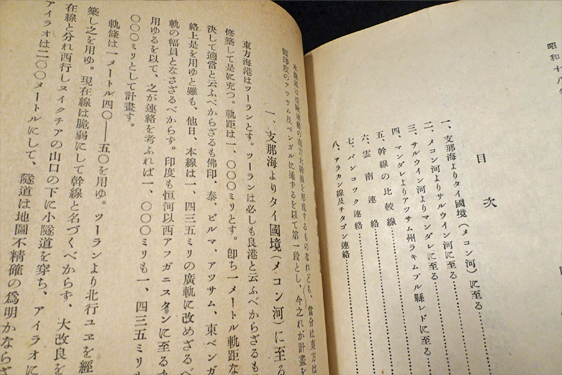 昭和十八年
目次
一、支那海よりタイ國境(メコン河)に至る
二、メコン河よりサルウイン河に至る
三、サルウイン河よりマンダレに至る
四、マンダレよりアツサム州ラキムプル縣レドに至る
五、幹線の比較線
六、雲南連絡
七、バンコツク連絡
八、アラカン線及チタゴン連絡
のアツサム及ベンガルに通ずるを以て第一段とし、今之れが計畫を
一、支那海よりタイ國境(メコン河)に至る
東方海港はツーランとす。ツーランは必しも良港と云ふべからざるも
修築して是に充つ。軌距は一、〇〇〇ミリとす。即ち一メートル軌距な
決して適當と云ふべからざるも佛印、泰、ビルマ、アツサム、東ベンガ
絡上是を用ゆと雖も、他日、本線は一、四三五ミリの廣軌に改めざるべ
軌の幅員となさざるべからず。印度も恒河以西アフガニスタンに至るま
用ゆるを以て、之が連絡を考ふれば一、〇〇〇ミリも一、四三五ミリ
〇〇〇ミリとして計畫す。
軌條は一メートル四〇——五〇を用ゆ。ツーランより北行ユヱを經
築し之を用ゆ。現在線は脆弱にして幹線と名づくべからず、大改良を
在線と分れ西行しヌイクチアの山口の下に小隧道を穿ち、アイラオに
アイラオは二〇〇メートルにして、隧道は地圖不精確の爲明かならざ